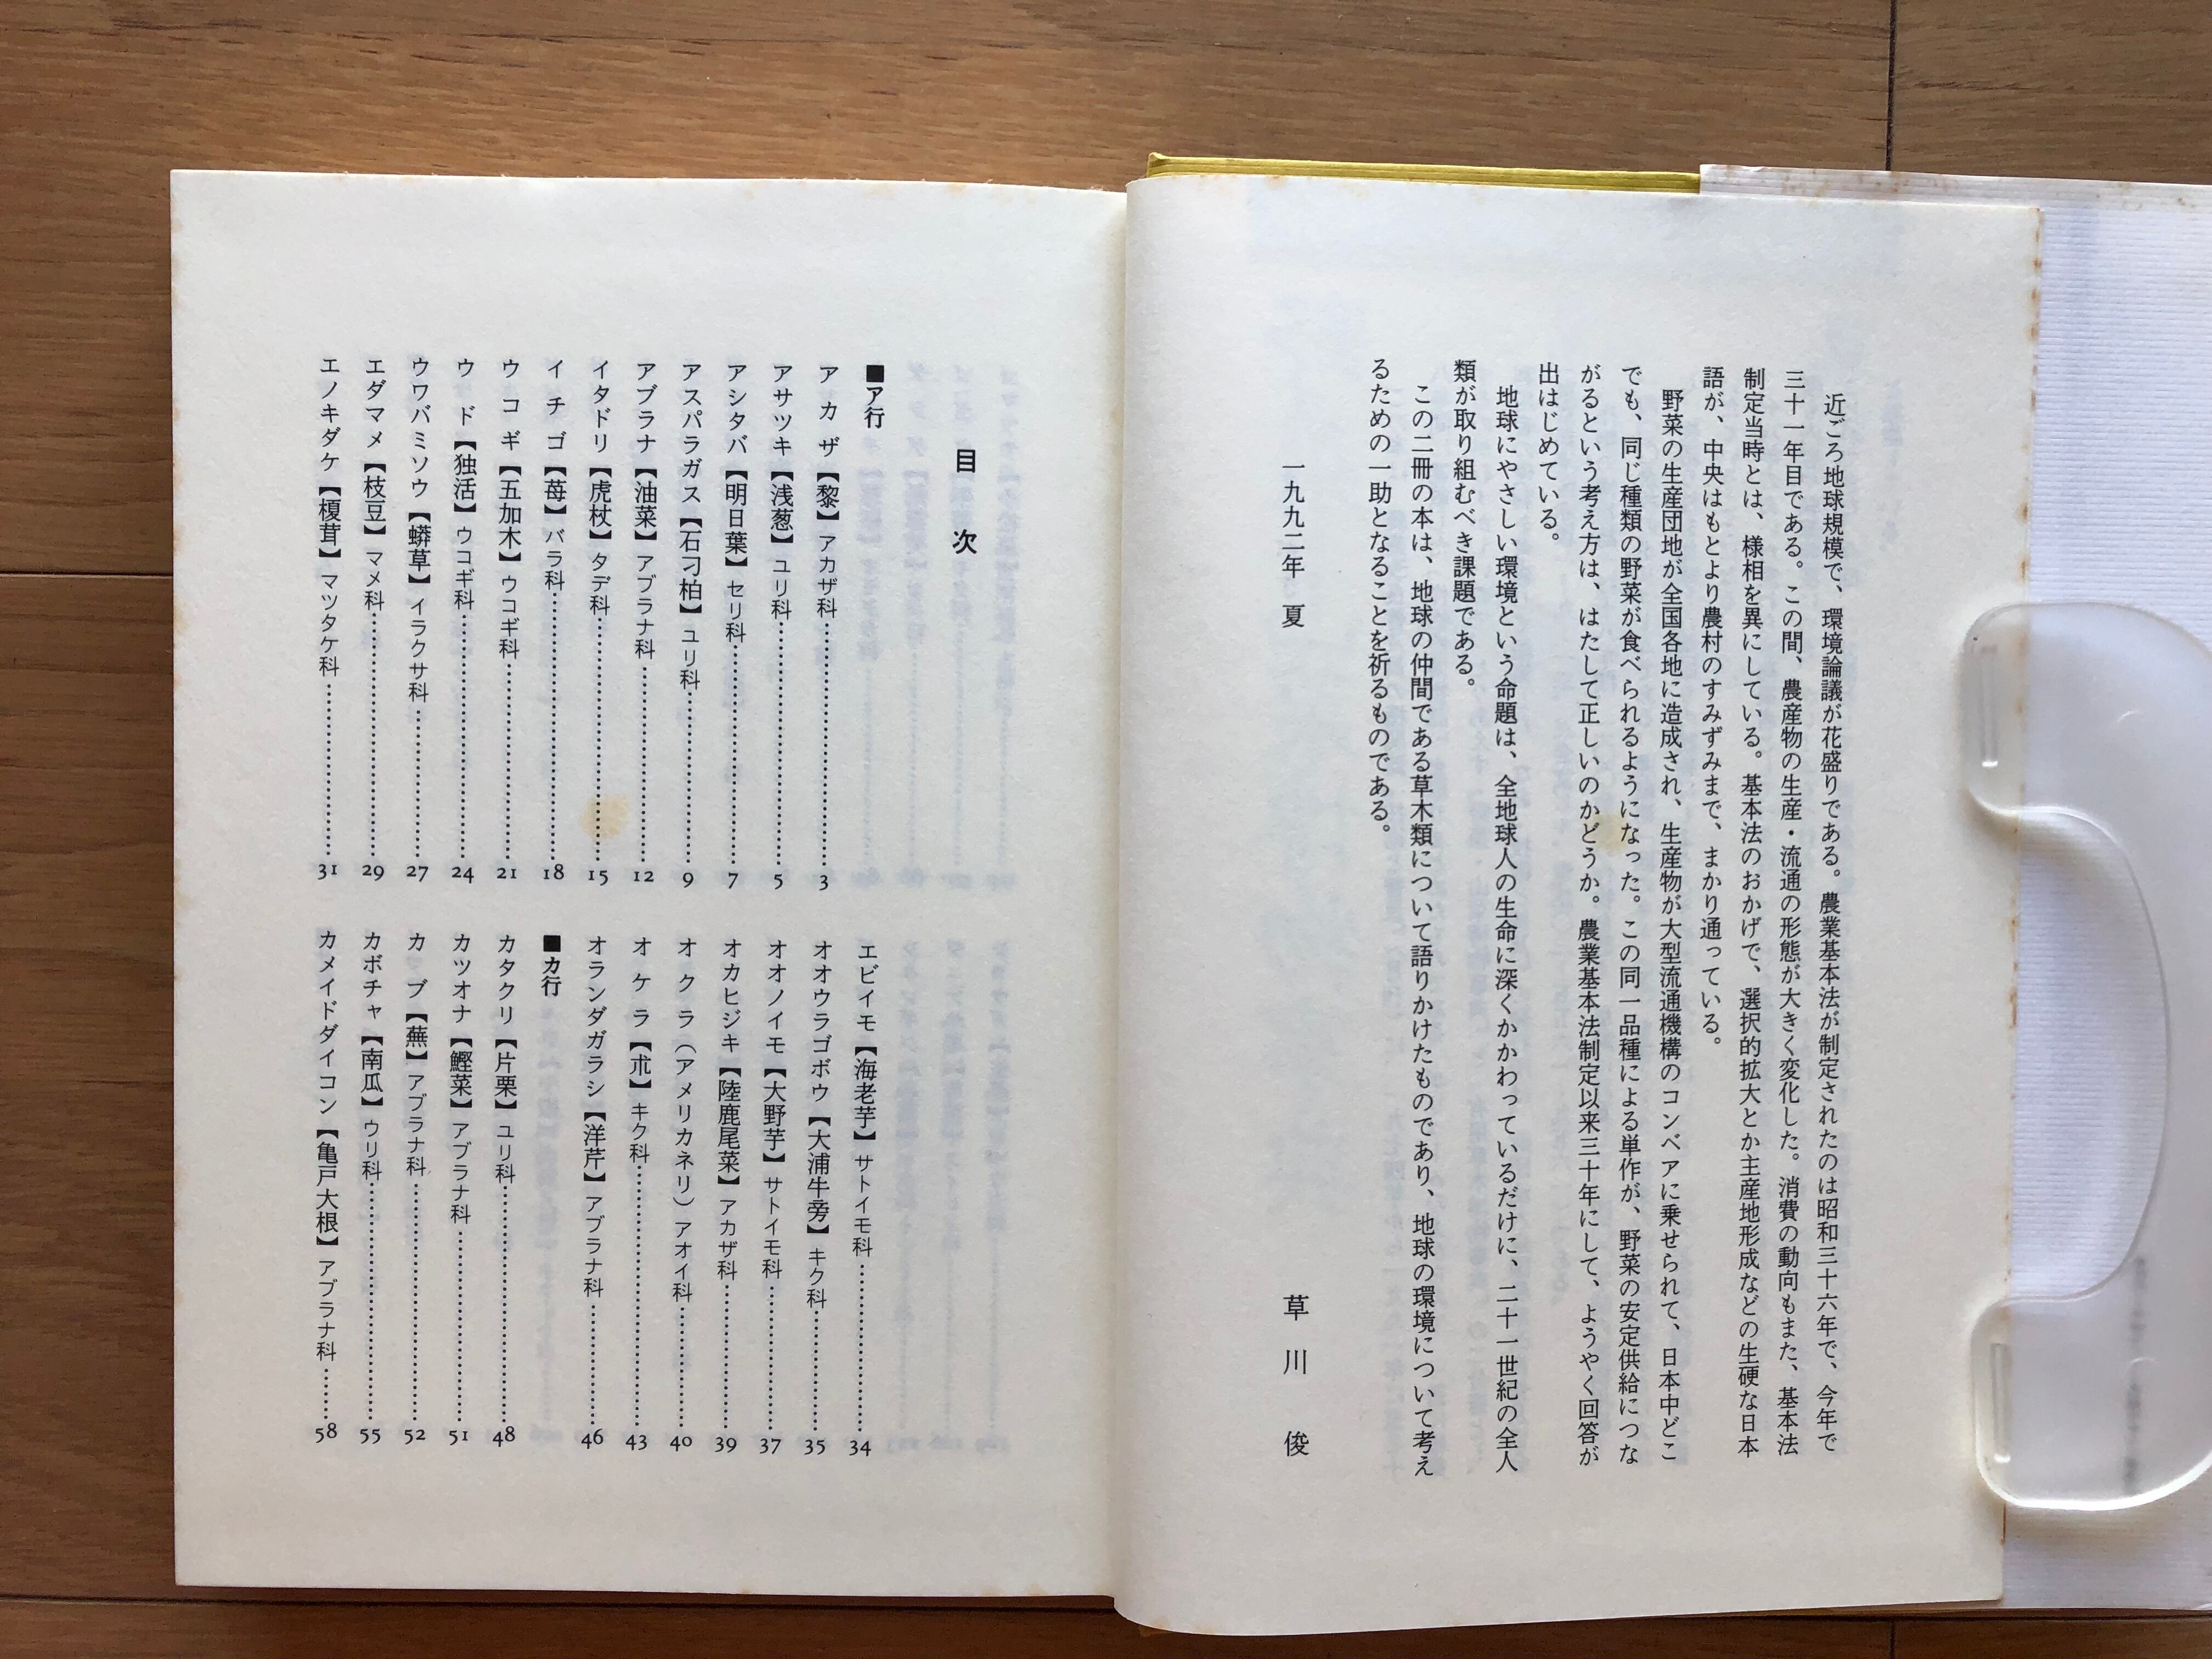 近ごろ地球規模で、環境論議が花盛りである。農業基本法が制定されたのは昭和三十六年で、今年で
三十一年目である。この間、農産物の生産・流通の形態が大きく変化した。消費の動向もまた、基本法
制定当時とは、様相を異にしている。基本法のおかげで、選択的拡大とか主産地形成などの生硬な日本
語が、中央はもとより農村のすみずみまで、まかり通っている。
野菜の生産団地が全国各地に造成され、生産物が大型流通機構のコンベアに乗せられて、日本中どこ
でも、同じ種類の野菜が食べられるようになった。この同一品種による単作が、野菜の安定供給につな
がるという考え方は、はたして正しいのかどうか。農業基本法制定以来三十年にして、ようやく回答が
出はじめている。
地球にやさしい環境という命題は、全地球人の生命に深くかかわっているだけに、二十一世紀の全人
類が取り組むべき課題である。
この二冊の本は、地球の仲間である草木類について語りかけたものであり、地球の環境について考え
るための一助となることを祈るものである。
一九九二年 夏
草川 俊
目次
■ア行
アカザ【藜】アカザ科……3
アサツキ【浅葱】ユリ科……5
アシタバ【明日葉】セリ科……7
アスパラガス【石刁柏】ユリ科……9
アブラナ【油菜】アブラナ科……12
イタドリ【虎杖】タデ科……15
イチゴ【苺】バラ科……18
ウコギ【五加木】ウコギ科……21
ウド【独活】ウコギ科……24
ウワバミソウ【蟒草】イラクサ科……27
エダマメ【枝豆】マメ科……29
エノキダケ【榎茸】マツタケ科……31
エビイモ【海老芋】サトイモ科……34
オオウラゴボウ【大浦牛旁】キク科……35
オオノイモ【大野芋】サトイモ科……37
オカヒジキ【陸鹿尾菜】アカザ科……39
オクラ（アメリカネリ）アオイ科……40
オケラ【朮】キク科……43
オランダガラシ【洋芹】アブラナ科……46
■カ行
カタクリ【片栗】ユリ科……48
カツオナ【鰹菜】アブラナ科……51
カブ【蕪】アブラナ科……52
カボチャ【南瓜】ウリ科……55
カメイドダイコン【亀戸大根】アブラナ科……58